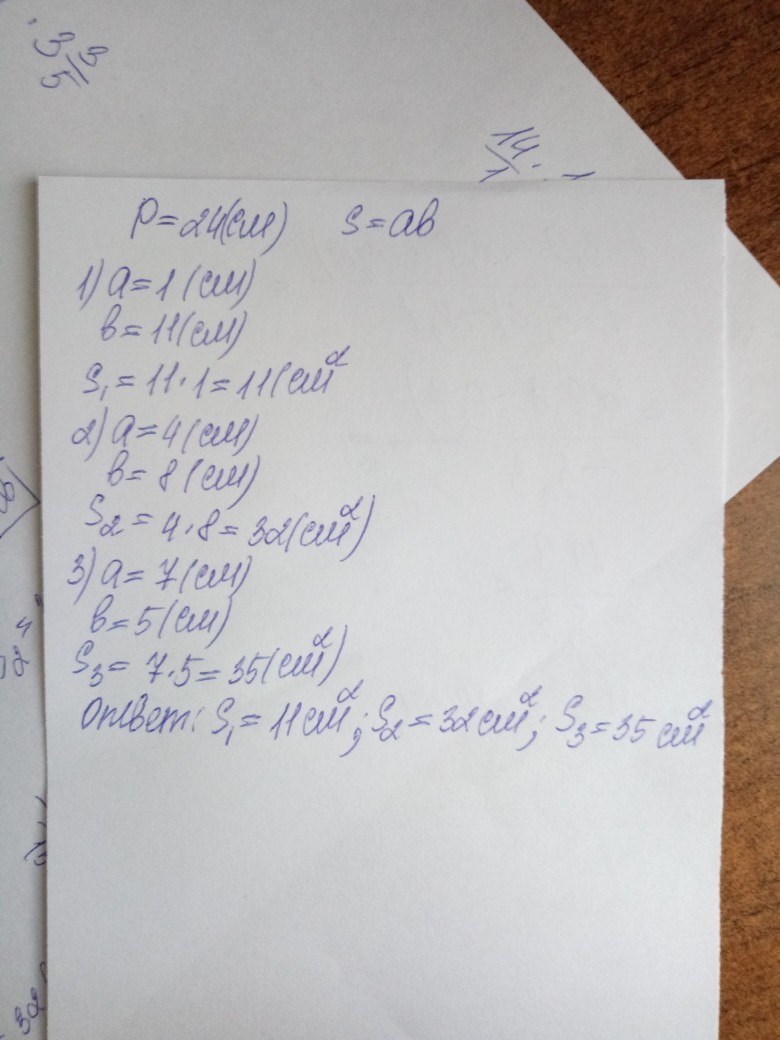 3/5 3
14 . 1
1
P=24(см) S=ав
1) а=1(см)
в=11(см)
S₁=11·1=11(см²
2) а=4(см)
в=8(см)
S₂=4·8=32(см²)
3) а=7(см)
в=5(см)
S₃=7·5=35(см²)
Ответ: S₁=11см²; S₂=32см²; S₃=35 см²
4
2
32